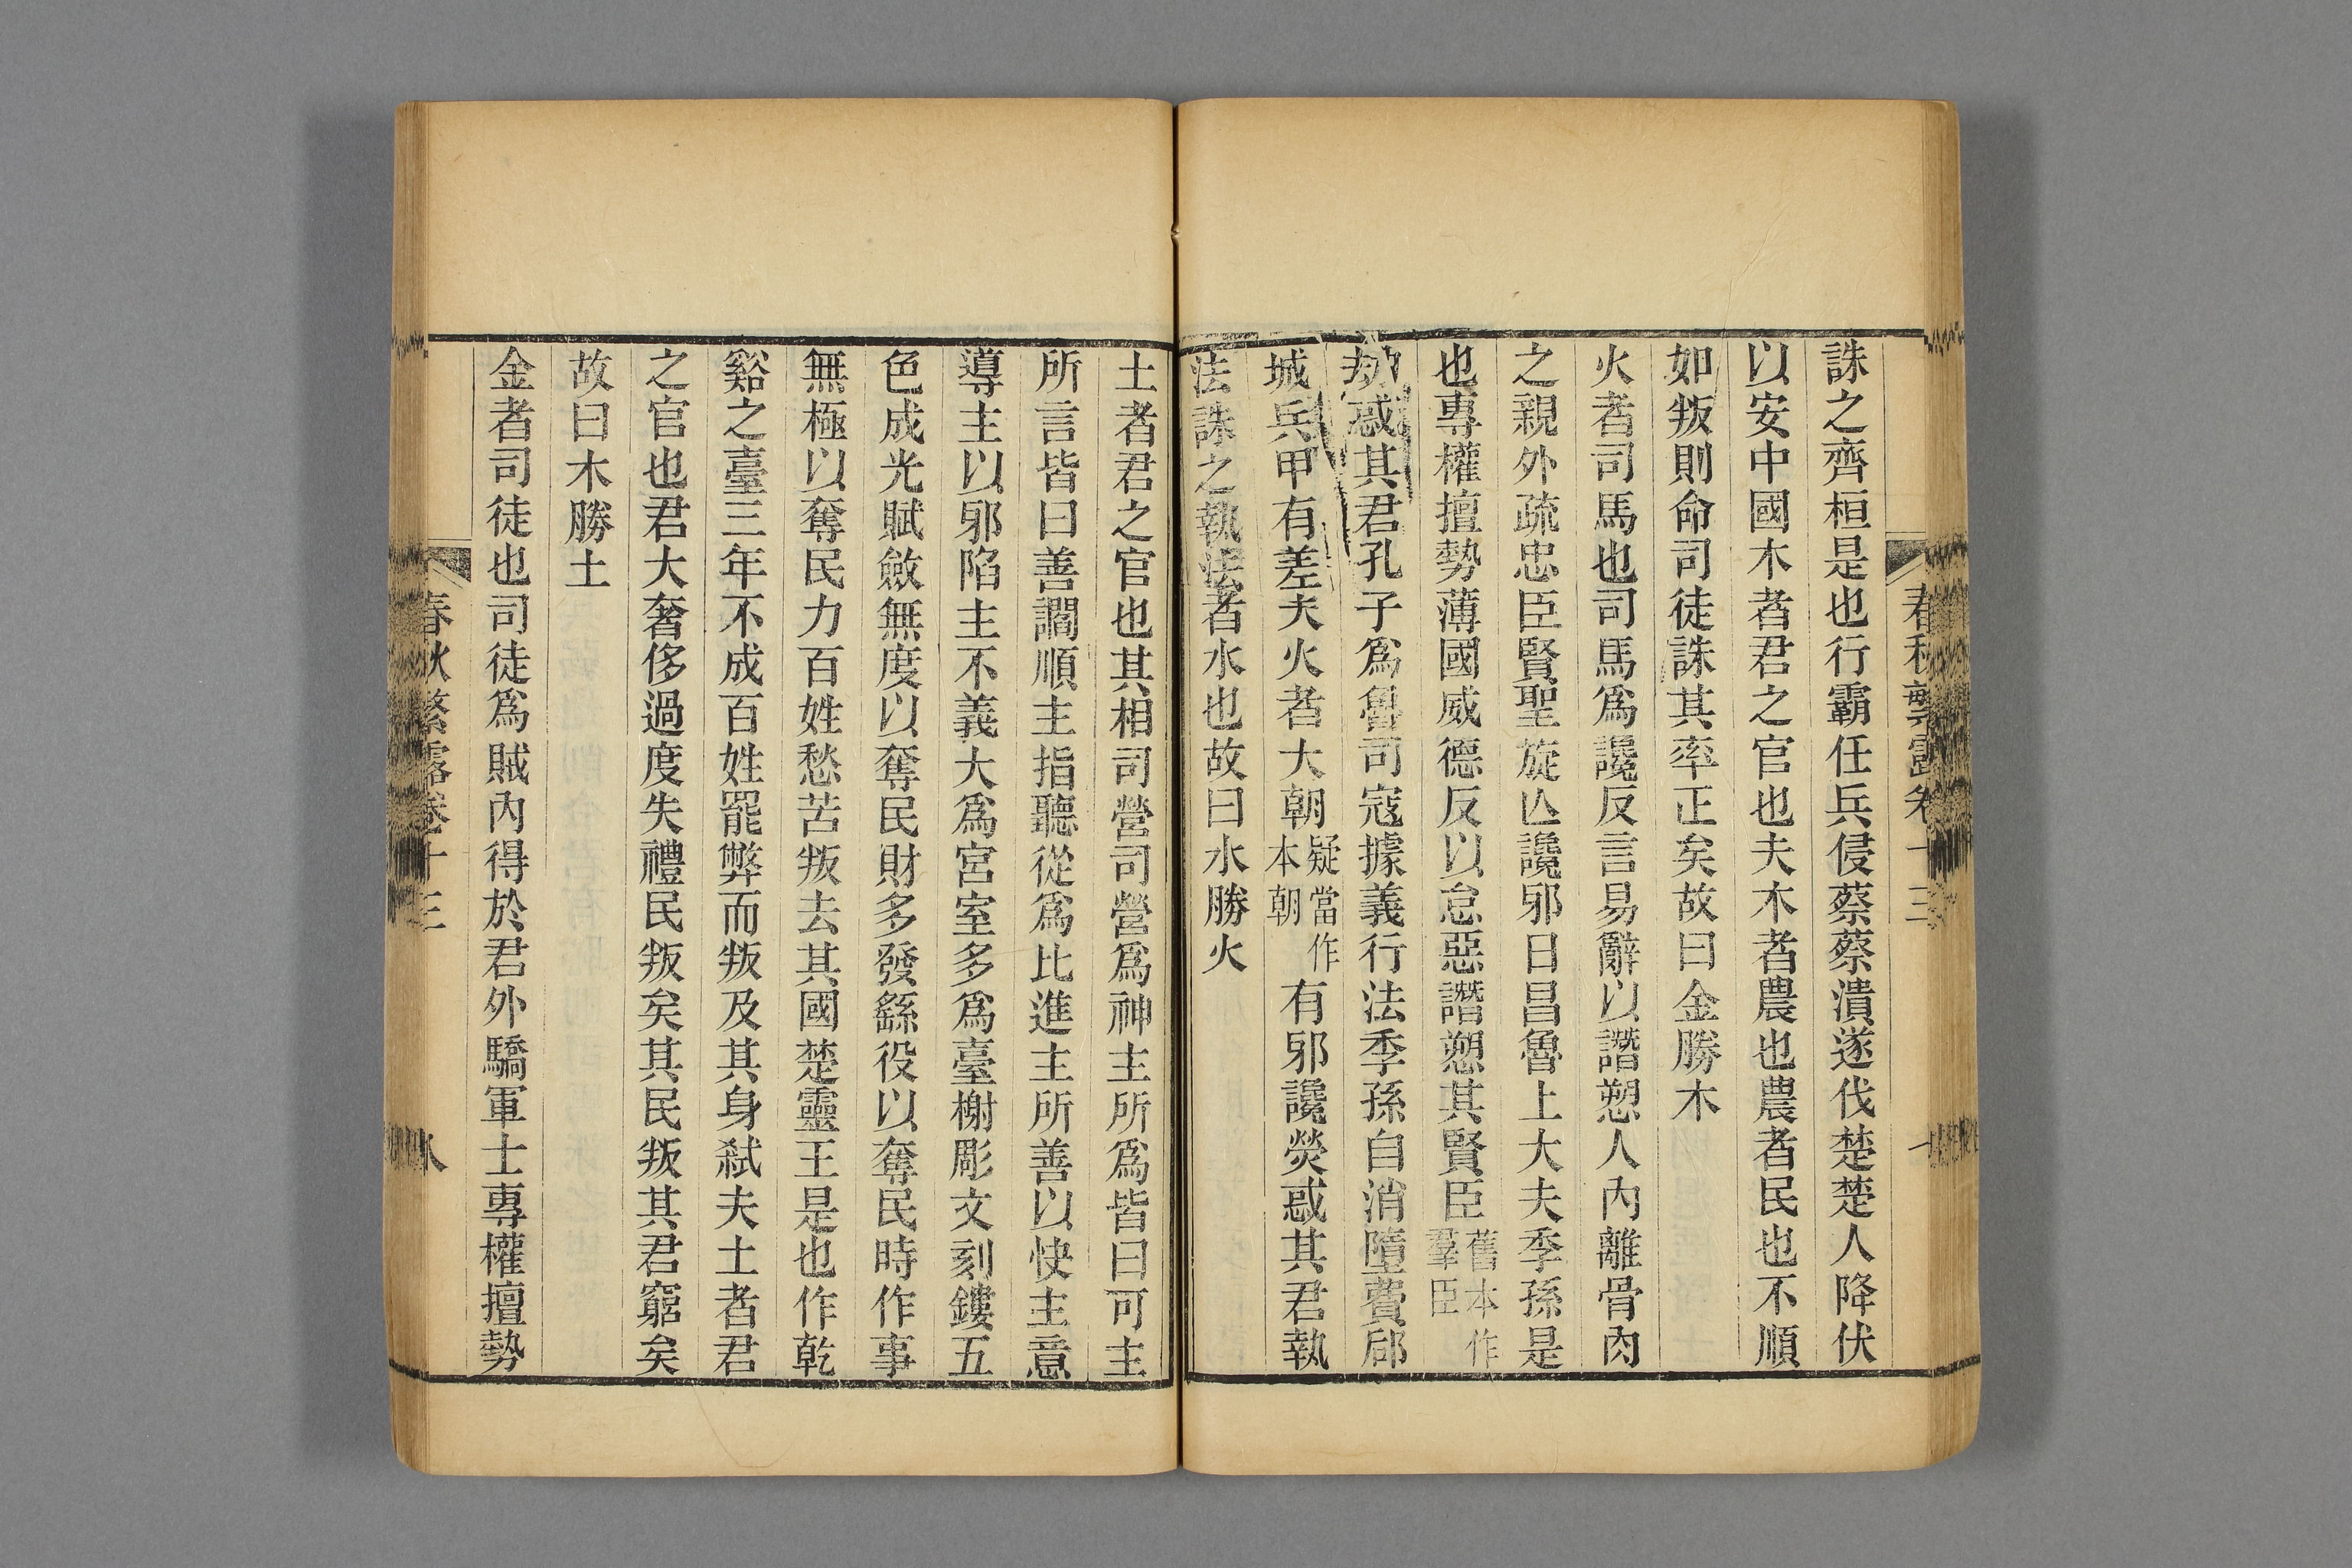 春秋繁露卷十三
誅之齊桓是也行霸任兵侵蔡蔡潰遂伐楚楚人降伏
以安中國木者君之官也夫木者農也農者民也不順
如叛則命司徒誅其率正矣故曰金勝木
火者司馬也司馬爲讒反言易辭以譖愬人內離骨肉
之親外疏忠臣賢聖旋亾讒邪日昌魯上大夫季孫是
也專權擅勢薄國威德反以怠惡譖愬其賢臣舊本作羣臣
劫惑其君孔子爲魯司寇據義行法季孫自消墮費郈
城兵甲有差夫火者大朝疑當作本朝有邪讒熒惑其君執
法誅之執法者水也故曰水勝火
土者君之官也其相司營司營爲神主所爲皆曰可主
所言皆曰善讇順主指聽從爲比進主所善以快主意
導主以邪陷主不義大爲宮室多爲臺榭彫文刻鏤五
色成光賦斂無度以奪民財多發繇役以奪民時作事
無極以奪民力百姓愁苦叛去其國楚靈王是也作乾
谿之臺三年不成百姓罷弊而叛及其身弑夫土者君
之官也君大奢侈過度失禮民叛矣其民叛其君窮矣
故曰木勝土
金者司徒也司徒爲賊內得於君外驕軍士專權擅勢
春秋繁露卷十三 八